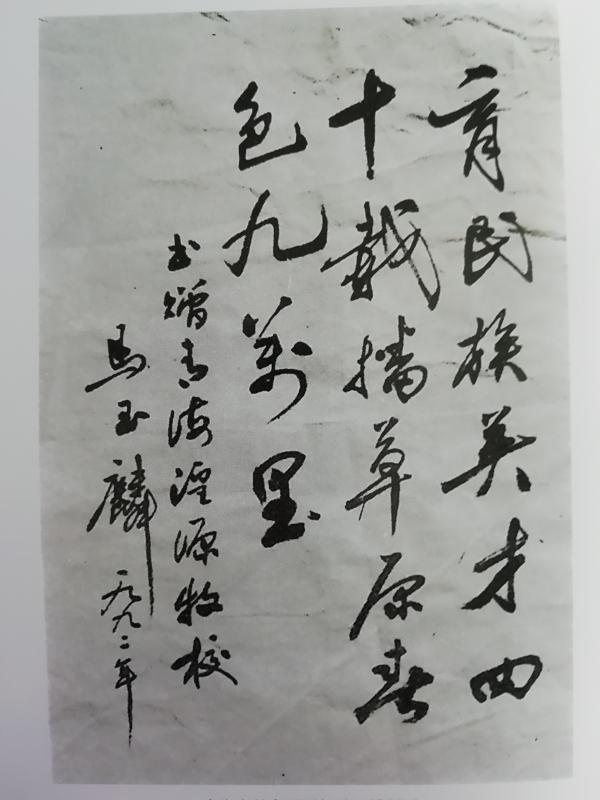 育民族英才四
十载播草原春
色九萬里
书赠青海湟源牧校
馬玉麟 一九九二年